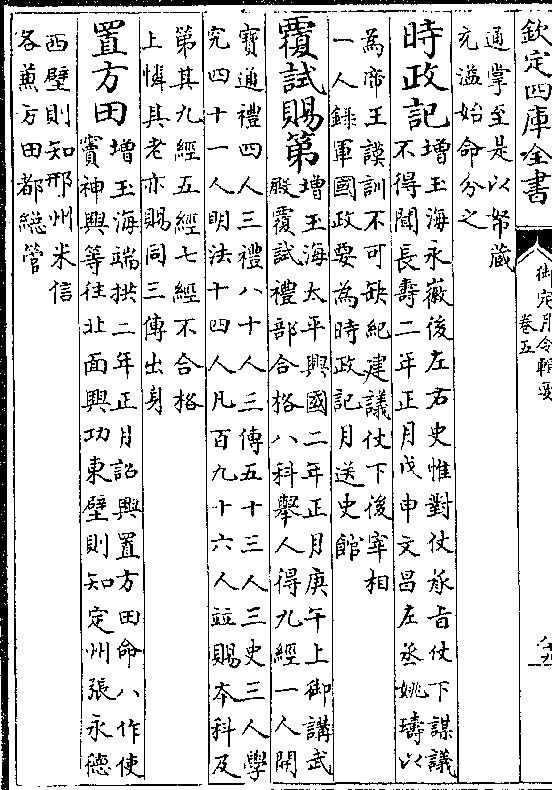 欽定四庫全書
御定月令輯要
卷五
通掌至是以帑藏
充溢始命分之
時政記
增玉海永徽後左右史惟對仗承旨仗下謀議
不得聞長壽二年正月戊申文昌左丞姚璹以
為帝王謨訓不可缺紀建議仗下後宰相
一人錄軍國政要為時政記月送史館
覆試賜第
增玉海太平興國二年正月庚午上御講武
殿覆試禮部合格八科舉人得九經一人開
寶通禮四人三禮八十人三傳五十三人三史三人學
究四十一人明法十四人凡百九十六人竝賜本科及
第其九經五經七經不合格
上憐其老亦賜同三傳出身
置方田
增玉海端拱二年正月詔興置方田命八作使
竇神興等往北面興功東壁則知定州張永德
西壁則知邢州米信
各兼方田都總管